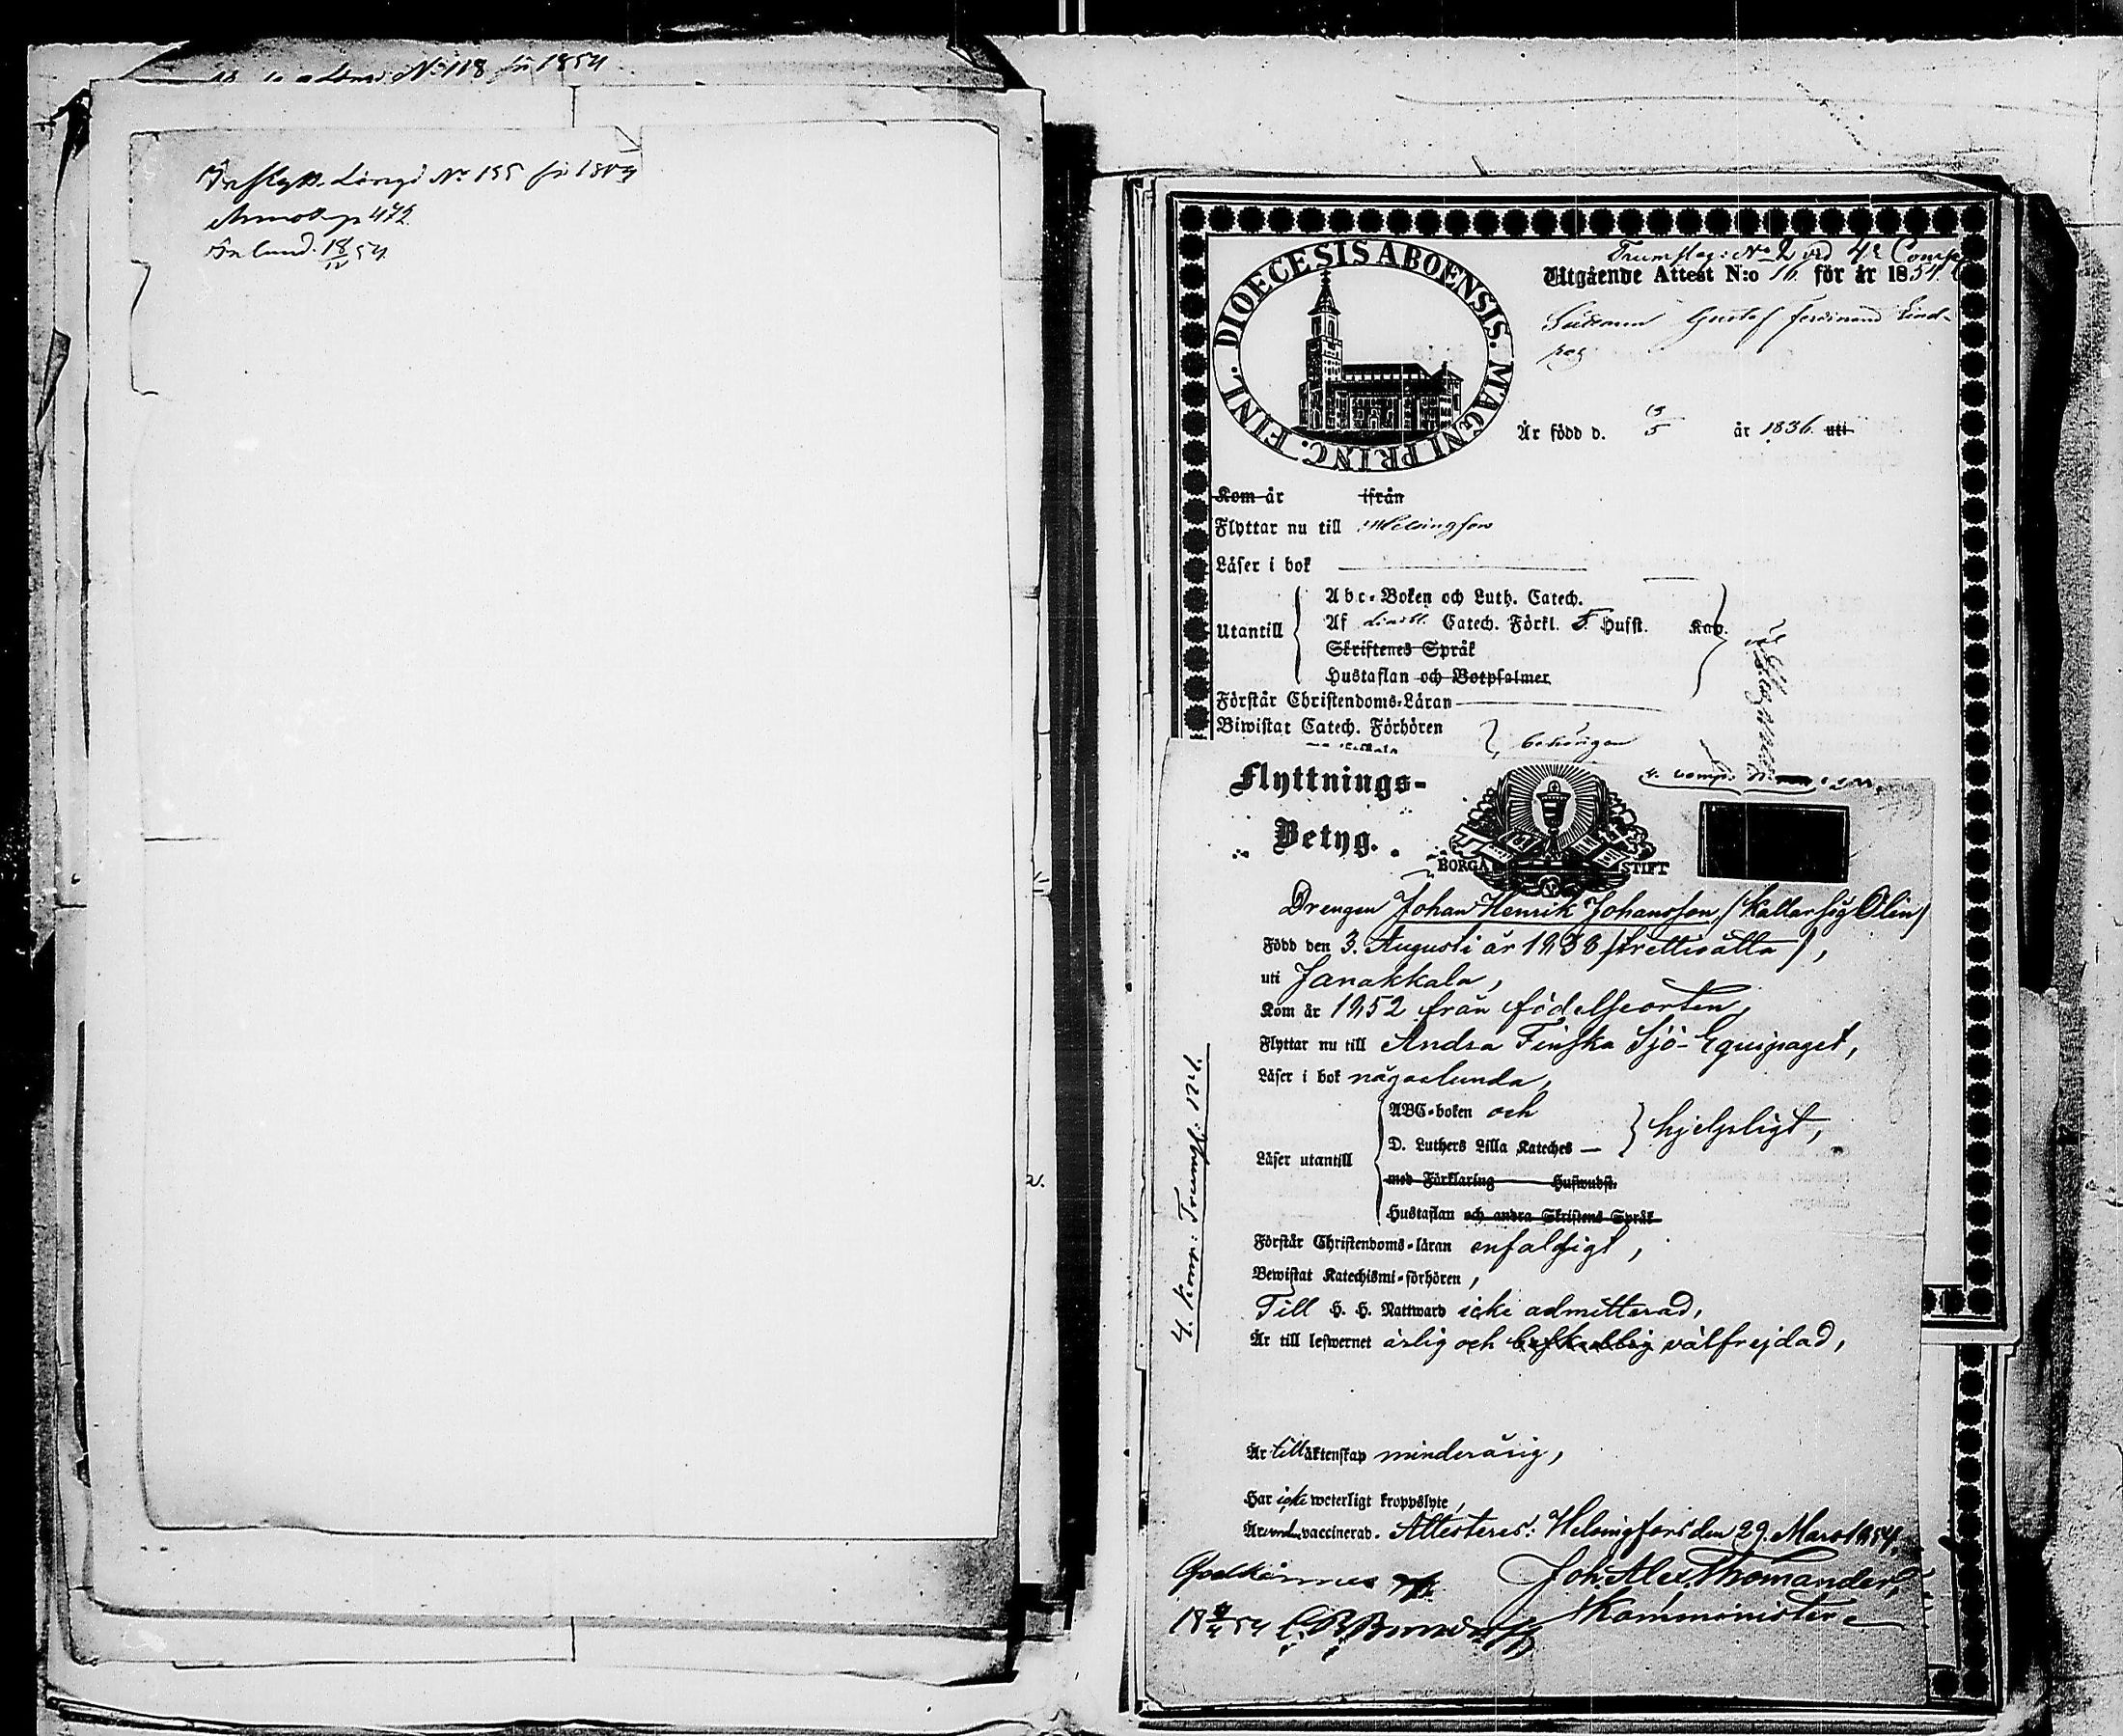 N:o 118 för 1854
Inflytt. Längd No 155 för 1854
Annot. p 472.
Inlund. 18/IV 54
Trumslag: No 2 vid 4e Comp
Utgående Attest N:o 16. för år 1854.
DIOECESIS ABOENSIS. MAGNI PRINC. FINL.
Gustaf Ferdinand Lind-
Är född d. 13/5 år 1836. uti
Kom år ifrån
Flyttar nu till Helsingfors
Läser i bok
Utantill
Abc-Boken och Luth. Catech.
Af Catech. Förkl. 5 Husst. Kap.
Skriftenes Språk
Hustaflan och Botpsalmer
Förstår Christendoms-Läran
Biwistat Catech. Förhören
behörigen
4. Comp.
Flyttnings-
Betyg.
BORGÅ STIFT
Drengen Johan Henrik Johansson, (kallar sig Olin)
Född den 3. Augusti år 1838 (trettioåtta),
uti Janakkala,
Kom år 1852 från födelseorten,
Flyttar nu till Andra Finska Sjö-Equipaget,
Läser i bok någorlunda,
Läser utantill
ABC-boken och
D. Luthers Lilla Kateches —
hjelpligt,
med Förklaring Huswudst.
Hustaflan och andra Skriftens Språk
Förstår Christendoms-läran enfaldigt,
Bewistat Katechismi-förhören,
Till H. H. Nattward icke admitterad,
Är till lefwernet ärlig och beskedlig välfrejdad,
Är till äktenskap minderårig,
Har icke weterligt kroppslyte,
Är vaccinerad. Attesteres: Helsingfors den 29. Mars 1854,
Joh. Alex. Thomander,
Komminister
Godkännes
18 54
4. Komp: Trumsl: N:o 1.